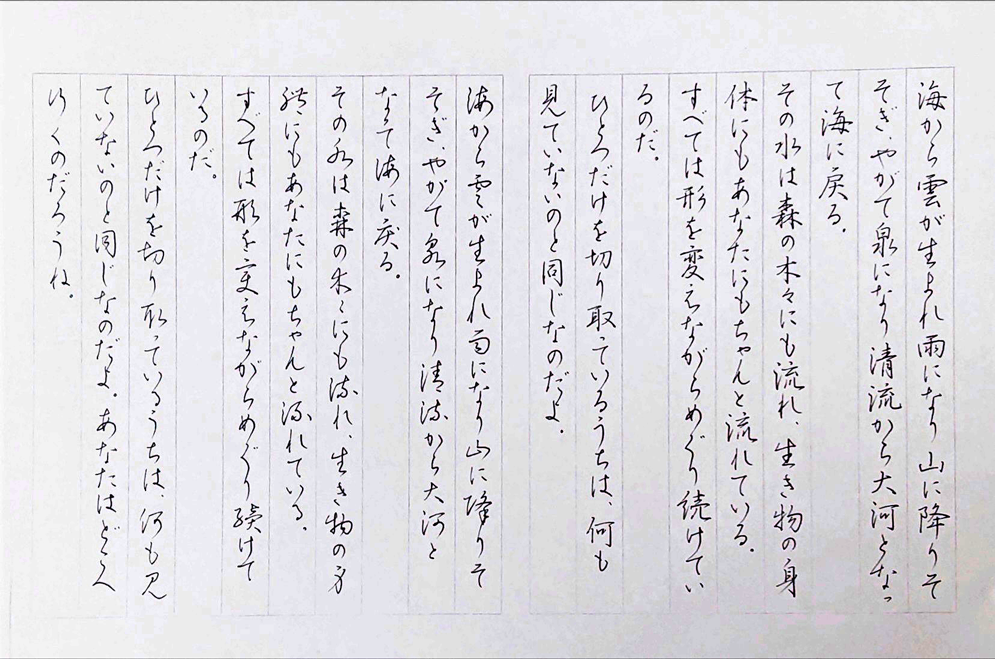 海から雲が生まれ雨になり山に降りそ
そぎ、やがて泉になり清流から大河となっ
て海に戻る。
その水は森の木々にも流れ、生き物の身
体にもあなたにもちゃんと流れている。
すべては形を変えながらめぐり続けてい
るのだ。
ひとつだけを切り取っているうちは、何も
見ていないのと同じなのだよ。
海から雲が生まれ雨になり山に降りそ
そぎ、やがて泉になり清流から大河と
なって海に戻る。
その水は森の木々にも流れ、生き物の身
体にもあなたにもちゃんと流れている。
すべては形を変えながらめぐり続けて
いるのだ。
ひとつだけを切り取っているうちは、何も見
ていないのと同じなのだよ。あなたはどこへ
行くのだろうね。